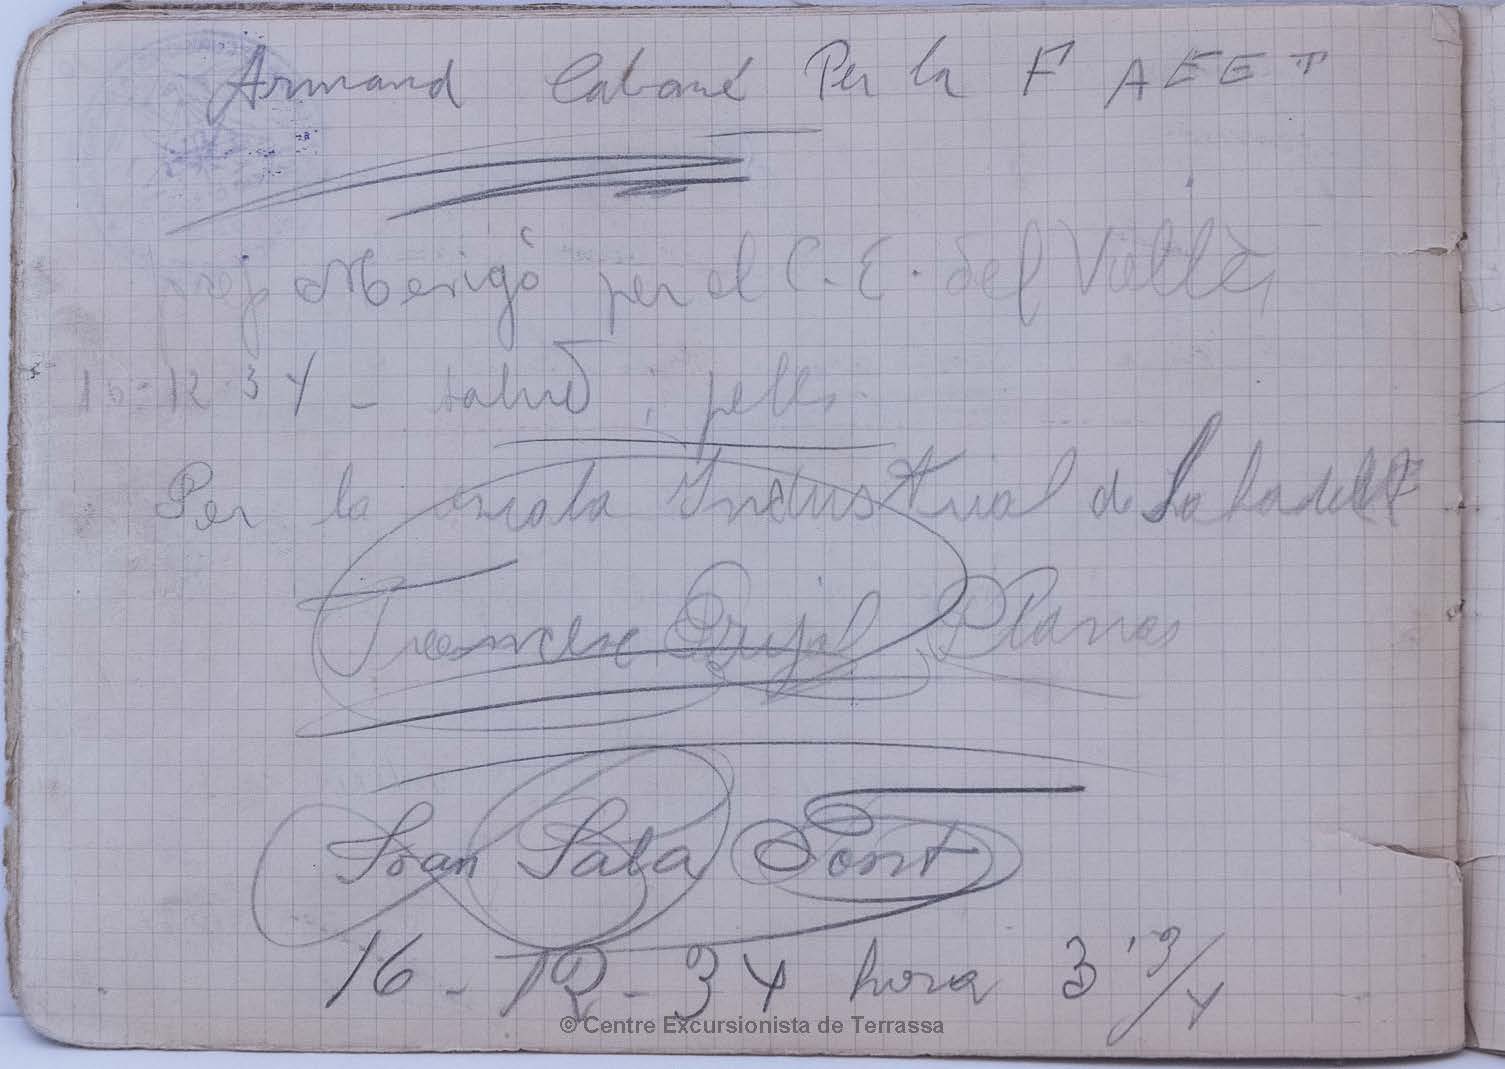 Armand Cabané Per la F A E E T
Merigó per el C. E. del Vallès
16-12-34 - salud i pells.
Per la escola Industrial de Sabadell
Francesc Grijol Planas
Joan Sala Font
16-12-34 hora 3 '3/4
© Centre Excursionista de Terrassa